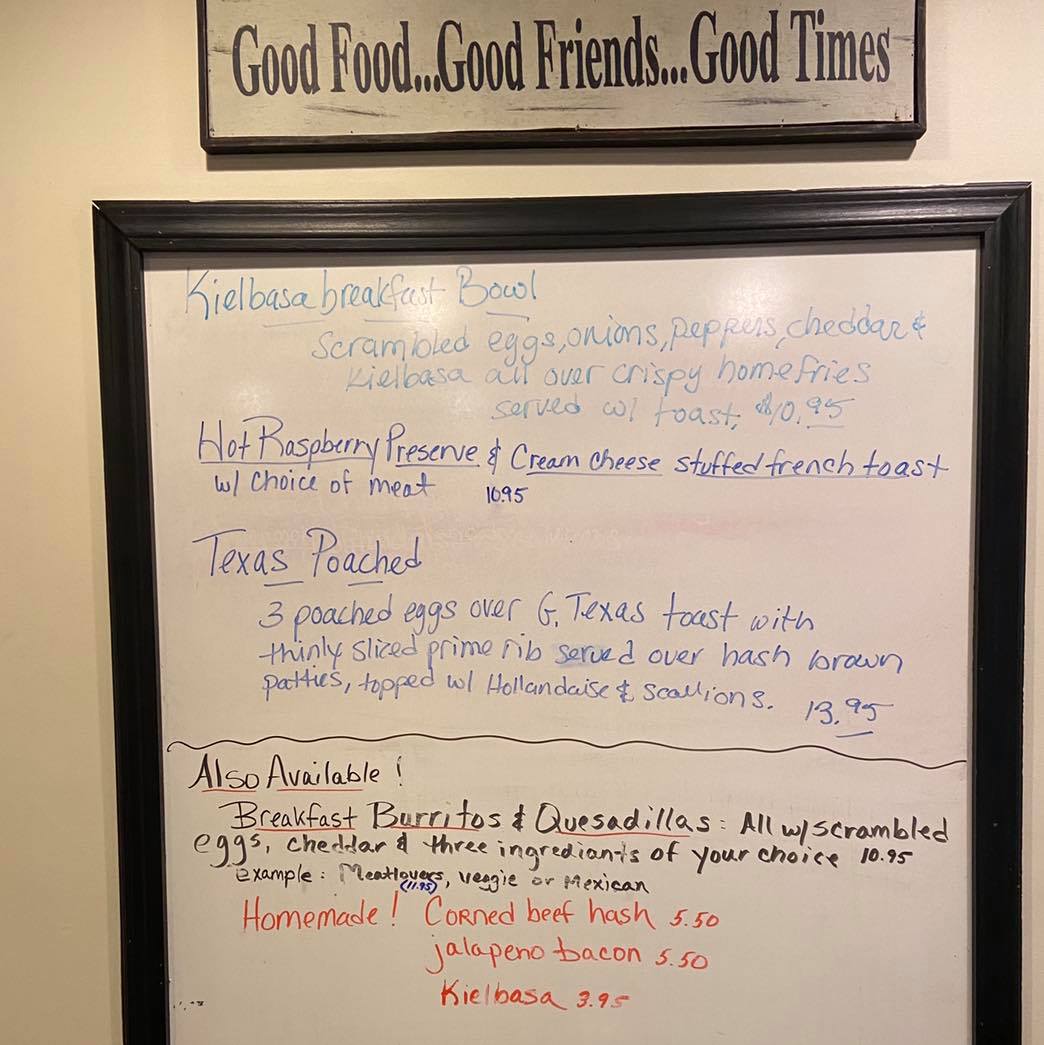 Good Food...Good Friends...Good Times
Kielbasa breakfast Bowl
Scrambled eggs, onions, peppers, cheddar &
Kielbasa all over crispy homefries
served w/ toast, $10.95
Hot Raspberry Preserve & Cream cheese stuffed french toast
w/ choice of meat 10.95
Texas Poached
3 poached eggs over G. Texas toast with
thinly sliced prime rib served over hash brown
patties, topped w/ Hollandaise & scallions. 13.95
Also Available!
Breakfast Burritos & Quesadillas: All w/ scrambled
eggs, cheddar & three ingrediants of your choice 10.95
example: Meatlovers, veggie or Mexican
(11.95)
Homemade! Corned beef hash 5.50
jalapeno bacon 5.50
Kielbasa 3.95